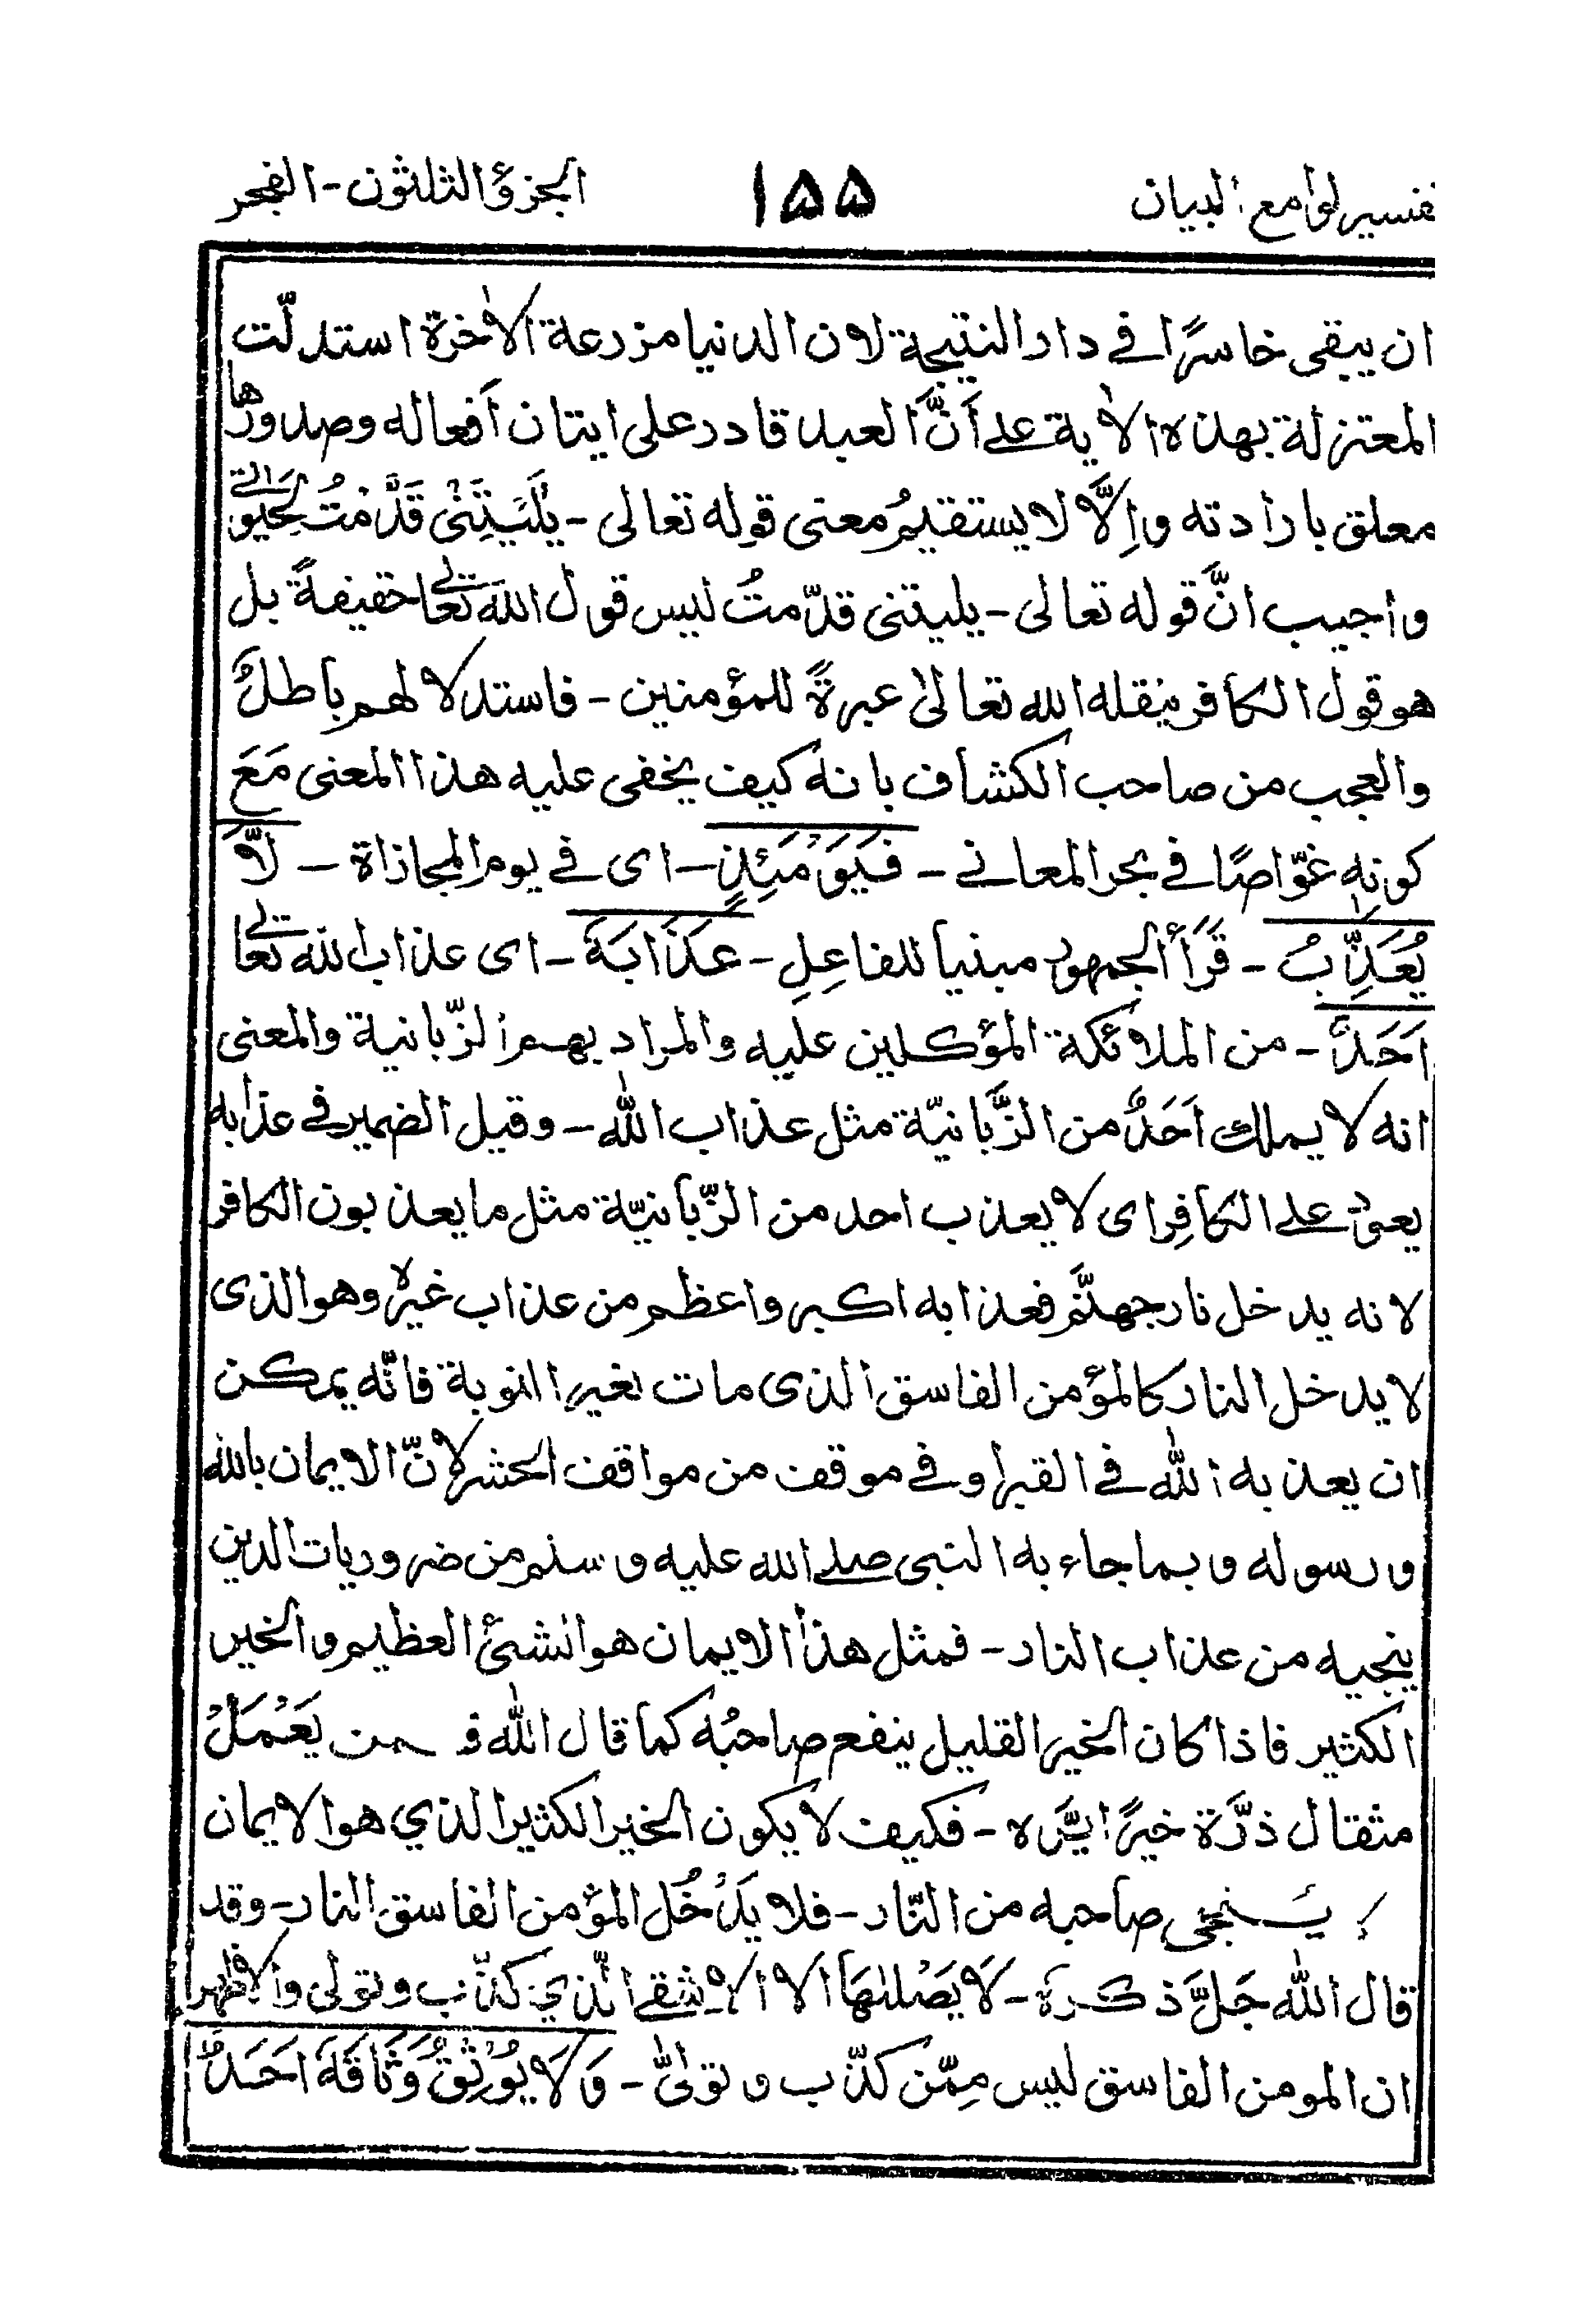 تفسير لوامع البيان ۱۵۵ الجزؤ الثلثون - الفجر
ان يبقى خاسرًا في دار النتيجة لان الدنيا مزرعة الاٰخرة استدلّت
المعتزلة بهذه الاٰية على أنَّ العبد قادر على ايتان أفعاله وصدورها
معلق بارادته وإلَّا لا يستقيمُ معنى قوله تعالى - يٰلَيْتَنِىْ قَدَّمْتُ لِحَيٰوتى
واجيب انَّ قوله تعالى - يليتنى قدّمتُ ليس قول الله تعالى حقيقةً بل
هو قول الكافر ينقله الله تعالىٰ عبرةً للمؤمنين - فاستدلالهم باطلٌ
والعجب من صاحب الكشاف بانه كيف يخفى عليه هذا المعنى مَعَ
كونِهٖ غوّاصًا في بحر المعاني - فَيَوْمَئِذٍ - اى في يوم المجازاة - لَّا
يُعَذِّبُ - قَرَأَ الجمهور مبنيا للفاعِلِ - عَذَابَهٗ - اى عذاب الله تعالى
اَحَدٌ - من الملائكة المؤكلين عليه والمراد بهم الزّبانية والمعنى
انه لا يملك اَحَدٌ من الزَّبانيّة مثل عذاب اللّٰه - وقيل الضمير في عذابه
يعود على الكافِر اى لا يعذب احد من الزّبانيّة مثل ما يعذبون الكافر
لانه يدخل نار جهنَّم فعذابه اكبر واعظم من عذاب غيره وهو الذى
لا يدخل النار كالمؤمن الفاسق الذى مات بغير التوبة فانّه يمكن
ان يعذبه اللّٰه في القبر او في موقف من مواقف الحشر لانّ الايمان بالله
ورسوله وبما جاء به النبى صلى الله عليه وسلم من ضروريات الدين
ينجيه من عذاب النار - فمثل هذا الايمان هو الشئ العظيم والخير
الكثير فاذا كان الخير القليل ينفع صاحبُه كما قال اللّٰه فمن يَعْمَلْ
مثقال ذرَّة خيرًا يَّره - فكيف لا يكون الخير الكثير الذي هو الايمان
ينجى صاحبه من النّار - فلا يَدْخُل المؤمن الفاسق النار - وقد
قال اللّٰه جَلَّ ذكره - لَا يَصْلٰىهَا الا الاشقى الّذي كذّب وتولى والاظهر
ان المومن الفاسق ليس مِمّن كذّب وتولىّٰ - وَلَا يُوْثِقُ وَثَاقَهٗ اَحَدٌ